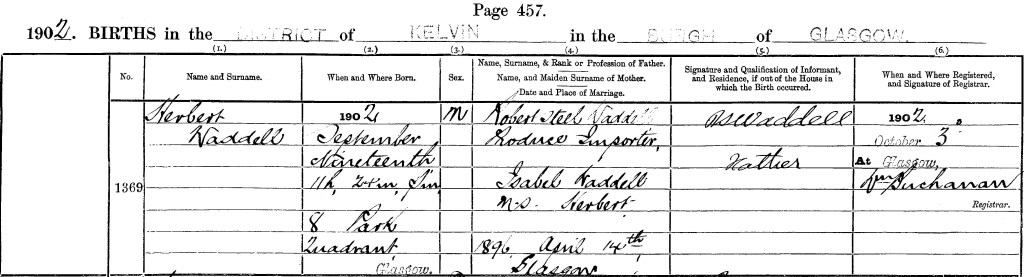 Page 457.
1902. BIRTHS in the DISTRICT of KELVIN in the BURGH of GLASGOW.
(1.) (2.) (3.) (4.) (5.) (6.)
No.
Name and Surname.
When and Where Born.
Sex.
Name, Surname, & Rank or Profession of Father.
Name, and Maiden Surname of Mother.
Date and Place of Marriage.
Signature and Qualification of Informant,
and Residence, if out of the House in
which the Birth occurred.
When and Where Registered,
and Signature of Registrar.
1369
Herbert
Waddell
1902
September
Nineteenth
11h, m,
8 Park
Quadrant,
Glasgow.
M
Robert Steel Waddell
Produce Importer,
Isabel Waddell
M.S. Herbert
1896, April 14th,
Glasgow
RSWaddell
Father
1902.
October 3.
At Glasgow,
Wm Buchanan
Registrar.